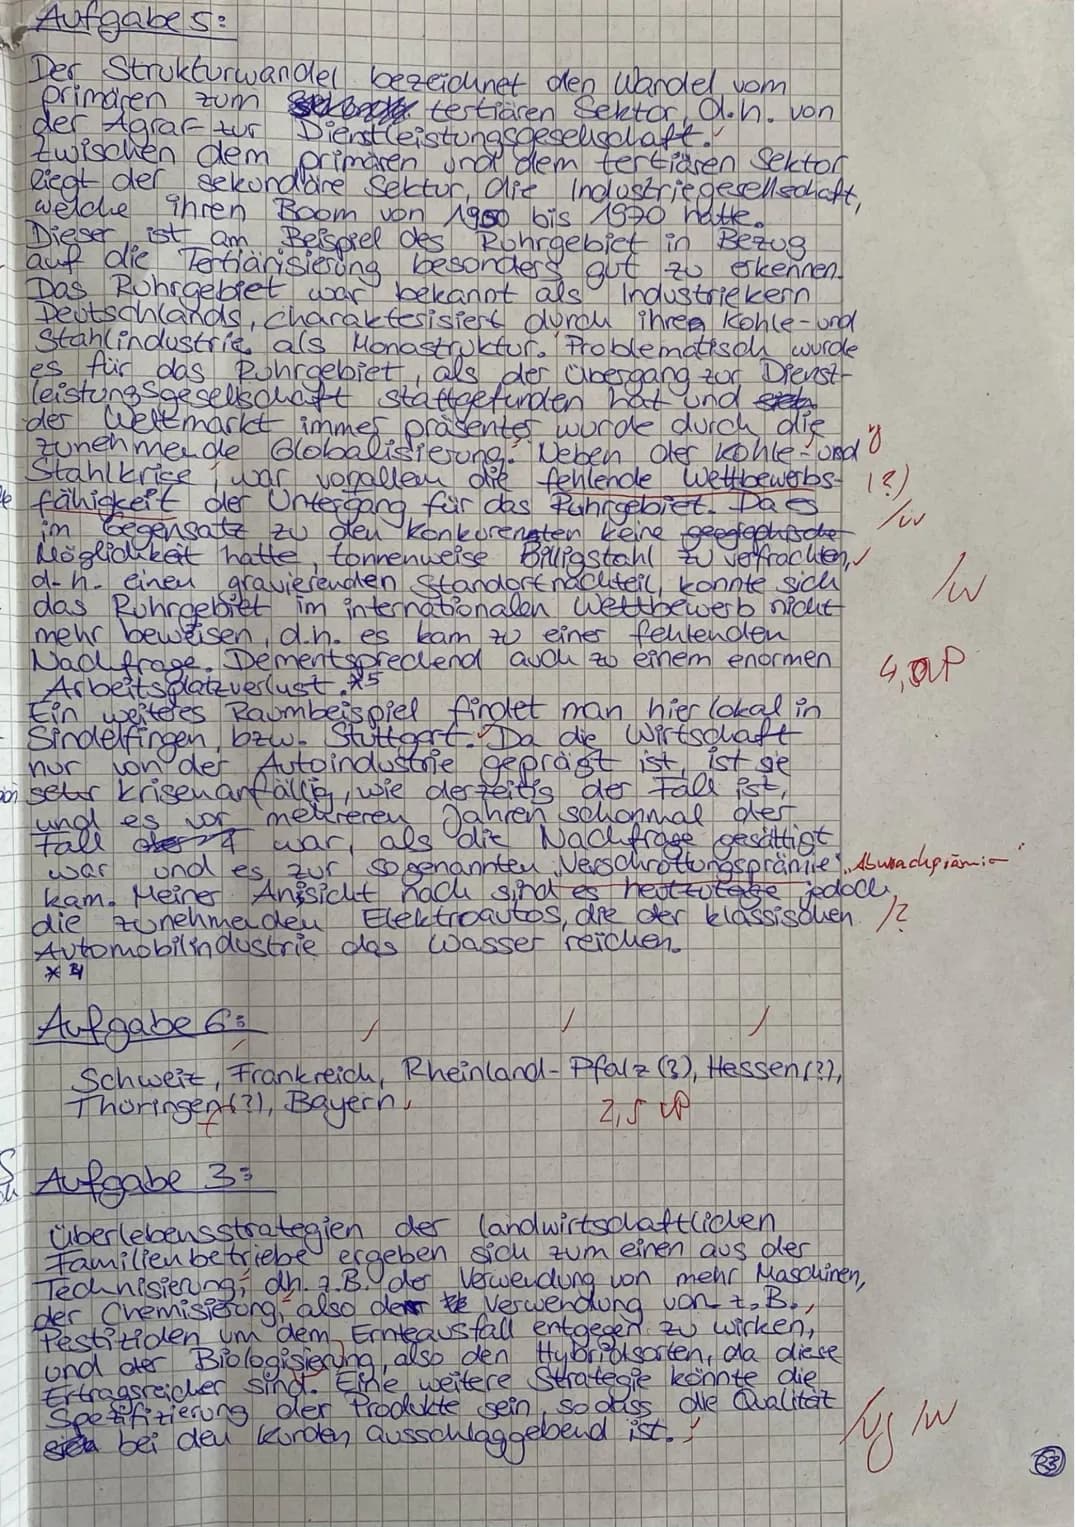 Aufgabe 5:
Der Strukturwandel bezeichnet den Wandel vom
primären zum tertiären Sektor, d.h. von
der Agrar- zur Dienstleistungsgesellschaft.
Zwischen dem primären und dem tertiären Sektor
liegt der sekundäre Sektor, die Industriegesellschaft,
welche ihren Boom von 1900 bis 1970 hatte.
Dieser ist am Beispiel des Ruhrgebiet in Bezug
auf die Tertiärisierung besonders gut zu erkennen.
Das Ruhrgebiet war bekannt als Industriekern
Deutschlands, charakterisiert durch ihre Kohle- und
Stahlindustrie als Monostruktur. Problematisch wurde
es für das Ruhrgebiet, als der Übergang zur Dienst-
leistungsgesellschaft stattgefunden hat und
der Weltmarkt immer präsenter wurde durch die
zunehmende Globalisierung. Neben der Kohle- und
Stahlkrise, war vorallem die fehlende Wettbewerbs- (?)
fähigkeit der Untergang für das Ruhrgebiet. Da es
im Gegensatz zu den Konkurenten keine geographische
Möglichkeit hatte, tonnenweise Billigstahl zu verfrachten,
d.h. einen gravierenden Standortnachteil, konnte sich
das Ruhrgebiet im internationalen Wettbewerb nicht
mehr beweisen, d.h. es kam zu einer fehlenden
Nachfrage. Dementsprechend auch zu einem enormen
Arbeitsplatzverlust. *5
Ein weiteres Raumbeispiel findet man hier lokal in
Sindelfingen, bzw. Stuttgart. Da die Wirtschaft
nur von der Autoindustrie geprägt ist, ist sie
sehr krisenanfällig, wie derzeitig der Fall ist,
und es vor mehreren Jahren schonmal der
Fall war, als die Nachfrage gesättigt
war und es zur sogenannten "Verschrottungsprämie" "Abwrackprämie"
kam. Meiner Ansicht nach sind es heutzutage jedoch
die zunehmenden Elektroautos, die der klassischen /?
Automobilindustrie das Wasser reichen.
Aufgabe 6:
Schweiz, Frankreich, Rheinland-Pfalz (?), Hessen (?),
Thüringen (?), Bayern
2,5 VP
Aufgabe 3:
Überlebensstrategien der landwirtschaftlichen
Familienbetriebe ergeben sich zum einen aus der
Technisierung, dh. z.B. der Verwendung von mehr Maschinen,
der Chemisierung, also der Verwendung von z.B.
Pestiziden um dem Ernteausfall entgegen zu wirken,
und der Biologisierung, also den Hybridsorten, da diese
Ertragsreicher sind. Eine weitere Strategie könnte die
Spezifizierung der Produkte sein, sodass die Qualität
bei den Kunden ausschlaggebend ist.